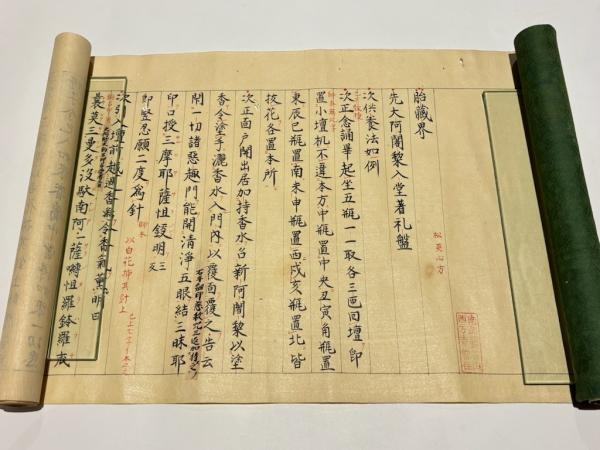 胎藏界
先大阿闍黎入堂著礼盤
次供養法如例
次正念誦畢起坐五瓶一一取各三匝回壇即
置小壇机不違本方中瓶置中央丑寅角瓶置
東辰巳瓶置南未申瓶置西戌亥瓶置北皆
抜花各置本所
次正面戸開出居加持香水召新阿闍黎以塗
香令塗手灑香水入門內以覆面覆之告云
開一切諸惡趣門能開清淨五眼結三昧耶
印口授三摩耶薩怛鑁明三反
即竪忍願二度為針
以白花挿其針上
次引入壇前越過香爐令香氣薰明曰
曩莫三曼多沒馱南阿薩嚩怛羅鉢羅